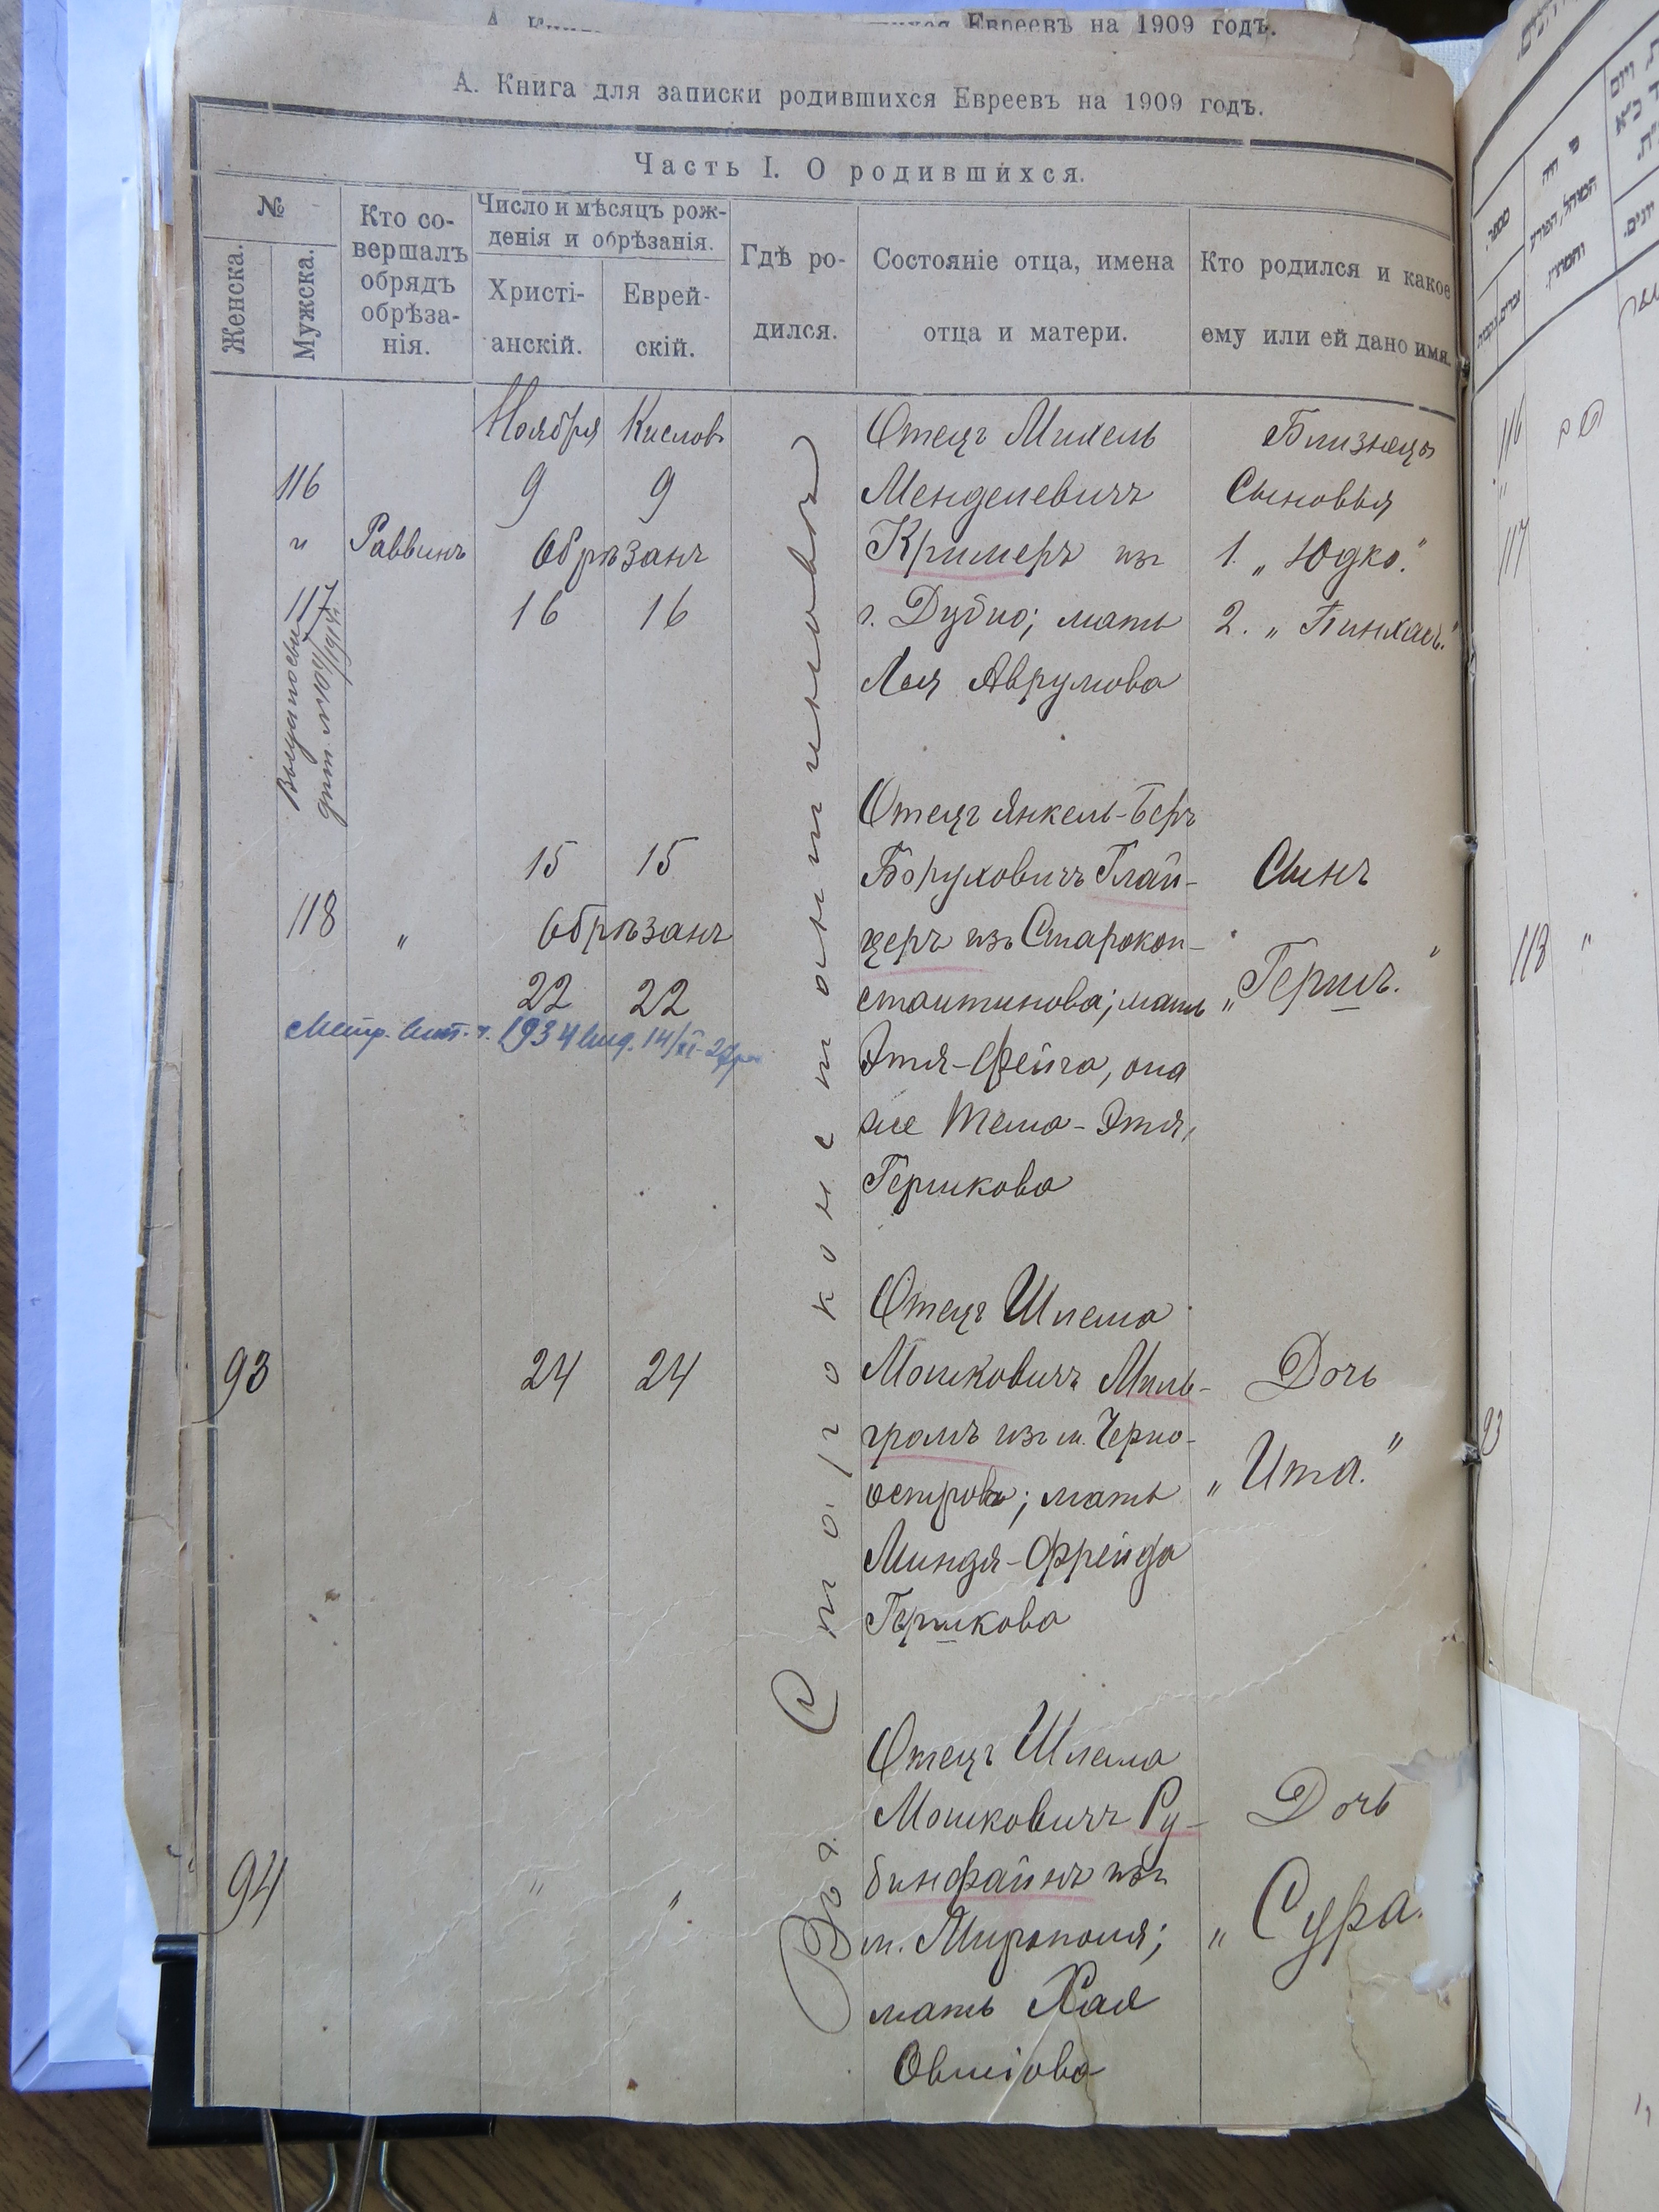 Евреевъ на 1909 годъ.
А. Книга для записки родившихся Евреевъ на 1909 годъ.
Часть I. О родившихся.
№
Женска.
Мужска.
Кто со-
вершалъ
обрядъ
обрѣза-
нія.
Число и мѣсяцъ рож-
денія и обрѣзанія.
Христі-
анскій.
Еврей-
скій.
Гдѣ ро-
дился.
Состояніе отца, имена
отца и матери.
Кто родился и какое
ему или ей дано имя.
Ноября Кислов
116
"
117
Раввинъ
9 9
Обрѣзанъ
16 16
Отецъ Михель
Менделевичъ
Кримеръ изъ
г. Дубно; мать
Лея Аврумова
Близнецы
Сыновья
1. „Юдко."
2. „Пинхасъ."
118
"
15 15
Обрѣзанъ
22 22
1934 14/XI
Отецъ Янкель-Беръ
Боруховичъ Глай-
церъ изъ Старокон-
стантинова; мать
Этя-Фейга, она
же Тема-Этя,
Гершкова
Сынъ
„Гершъ."
93
24 24
Отецъ Шлема
Мошковичъ Миль-
громъ изъ м. Черно-
острова; мать
Миндя-Фрейда
Гершкова
Дочь
„Ита."
94
" "
Отецъ Шлема
Мошковичъ Ру-
бинфайнъ изъ
м. Мирополя;
мать Хая
Овшіова
Дочь
„Сура.
Въ г. Староконстантиновѣ
116
"
117
118
"
93